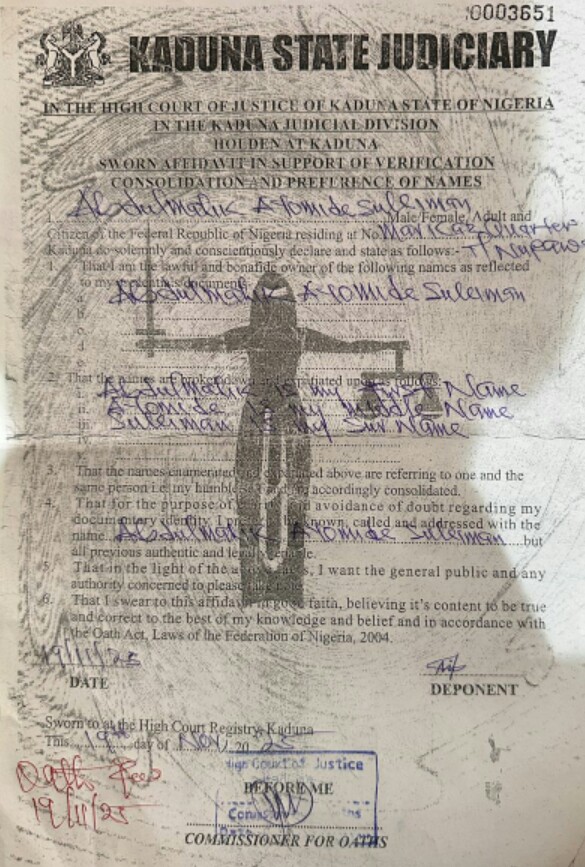 0003651
KADUNA STATE JUDICIARY
IN THE HIGH COURT OF JUSTICE OF KADUNA STATE OF NIGERIA
IN THE KADUNA JUDICIAL DIVISION
HOLDEN AT KADUNA
SWORN AFFIDAVIT IN SUPPORT OF VERIFICATION
CONSOLIDATION AND PREFERENCE OF NAMES
I, Abdulmalik Ayomide Suleiman Male/Female, Adult and
Citizen of the Federal Republic of Nigeria residing at No. Markaz Quarter
Kaduna do solemnly and conscientiously declare and state as follows:-
1. That I am the lawful and bonafide owner of the following names as reflected
to my
Abdulmalik Ayomide Suleiman
2. That the names are broken down as follows:
Abdulmalik is my first Name
Ayomide is my middle Name
Suleiman is my Sur Name
3. That the names enumerated above are referring to one and the
same person i.e. my humble accordingly consolidated.
4. That for the purpose of avoidance of doubt regarding my
documentary identity, I known, called and addressed with the
name Abdulmalik Ayomide Suleiman but
all previous authentic and
5. That in the light of the, I want the general public and any
authority concerned to please take note.
6. That I swear to this affidavit in good faith, believing it's content to be true
and correct to the best of my knowledge and belief and in accordance with
the Oath Act, Laws of the Federation of Nigeria, 2004.
19/11/25
DATE
DEPONENT
Sworn to at the High Court Registry, Kaduna
This 19th day of Nov, 2025
High Court of Justice
BEFORE ME
COMMISSIONER FOR OATHS
Oath Fees
19/11/25